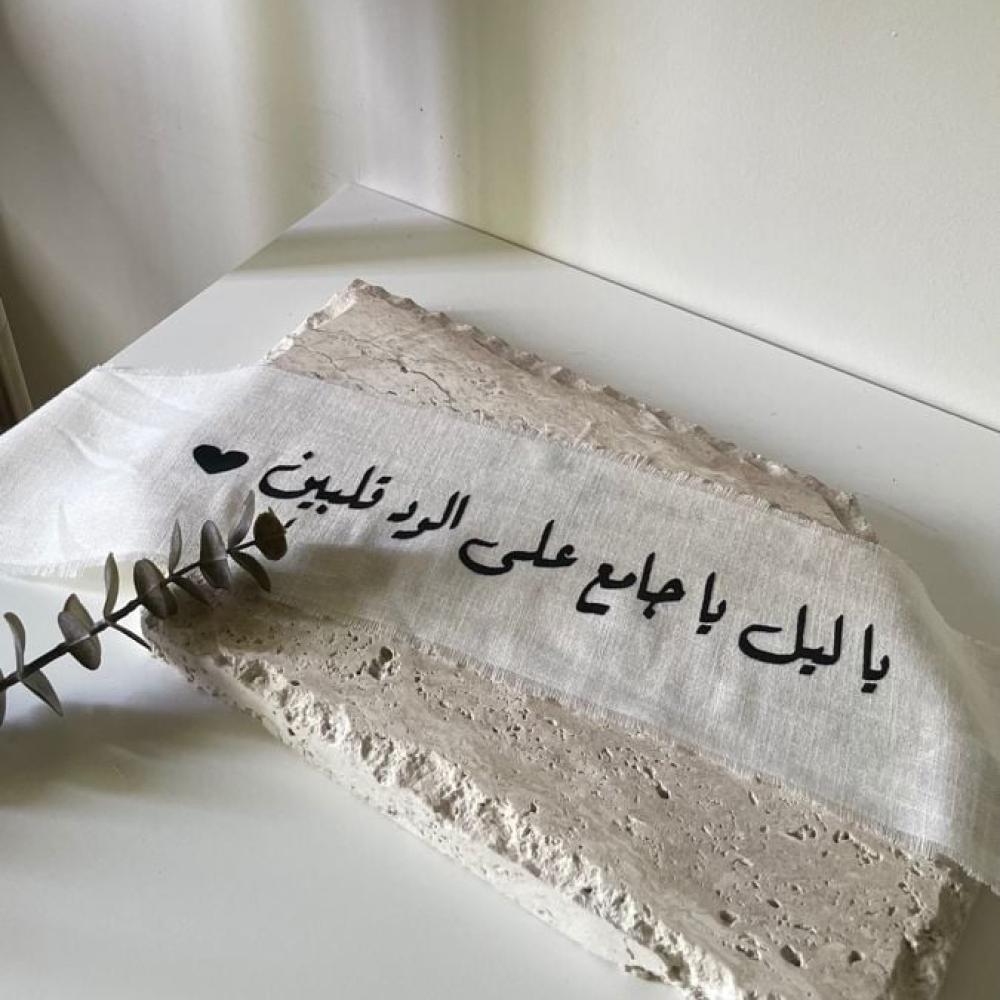 يا ليل يا جامع على الود قلبين ♥